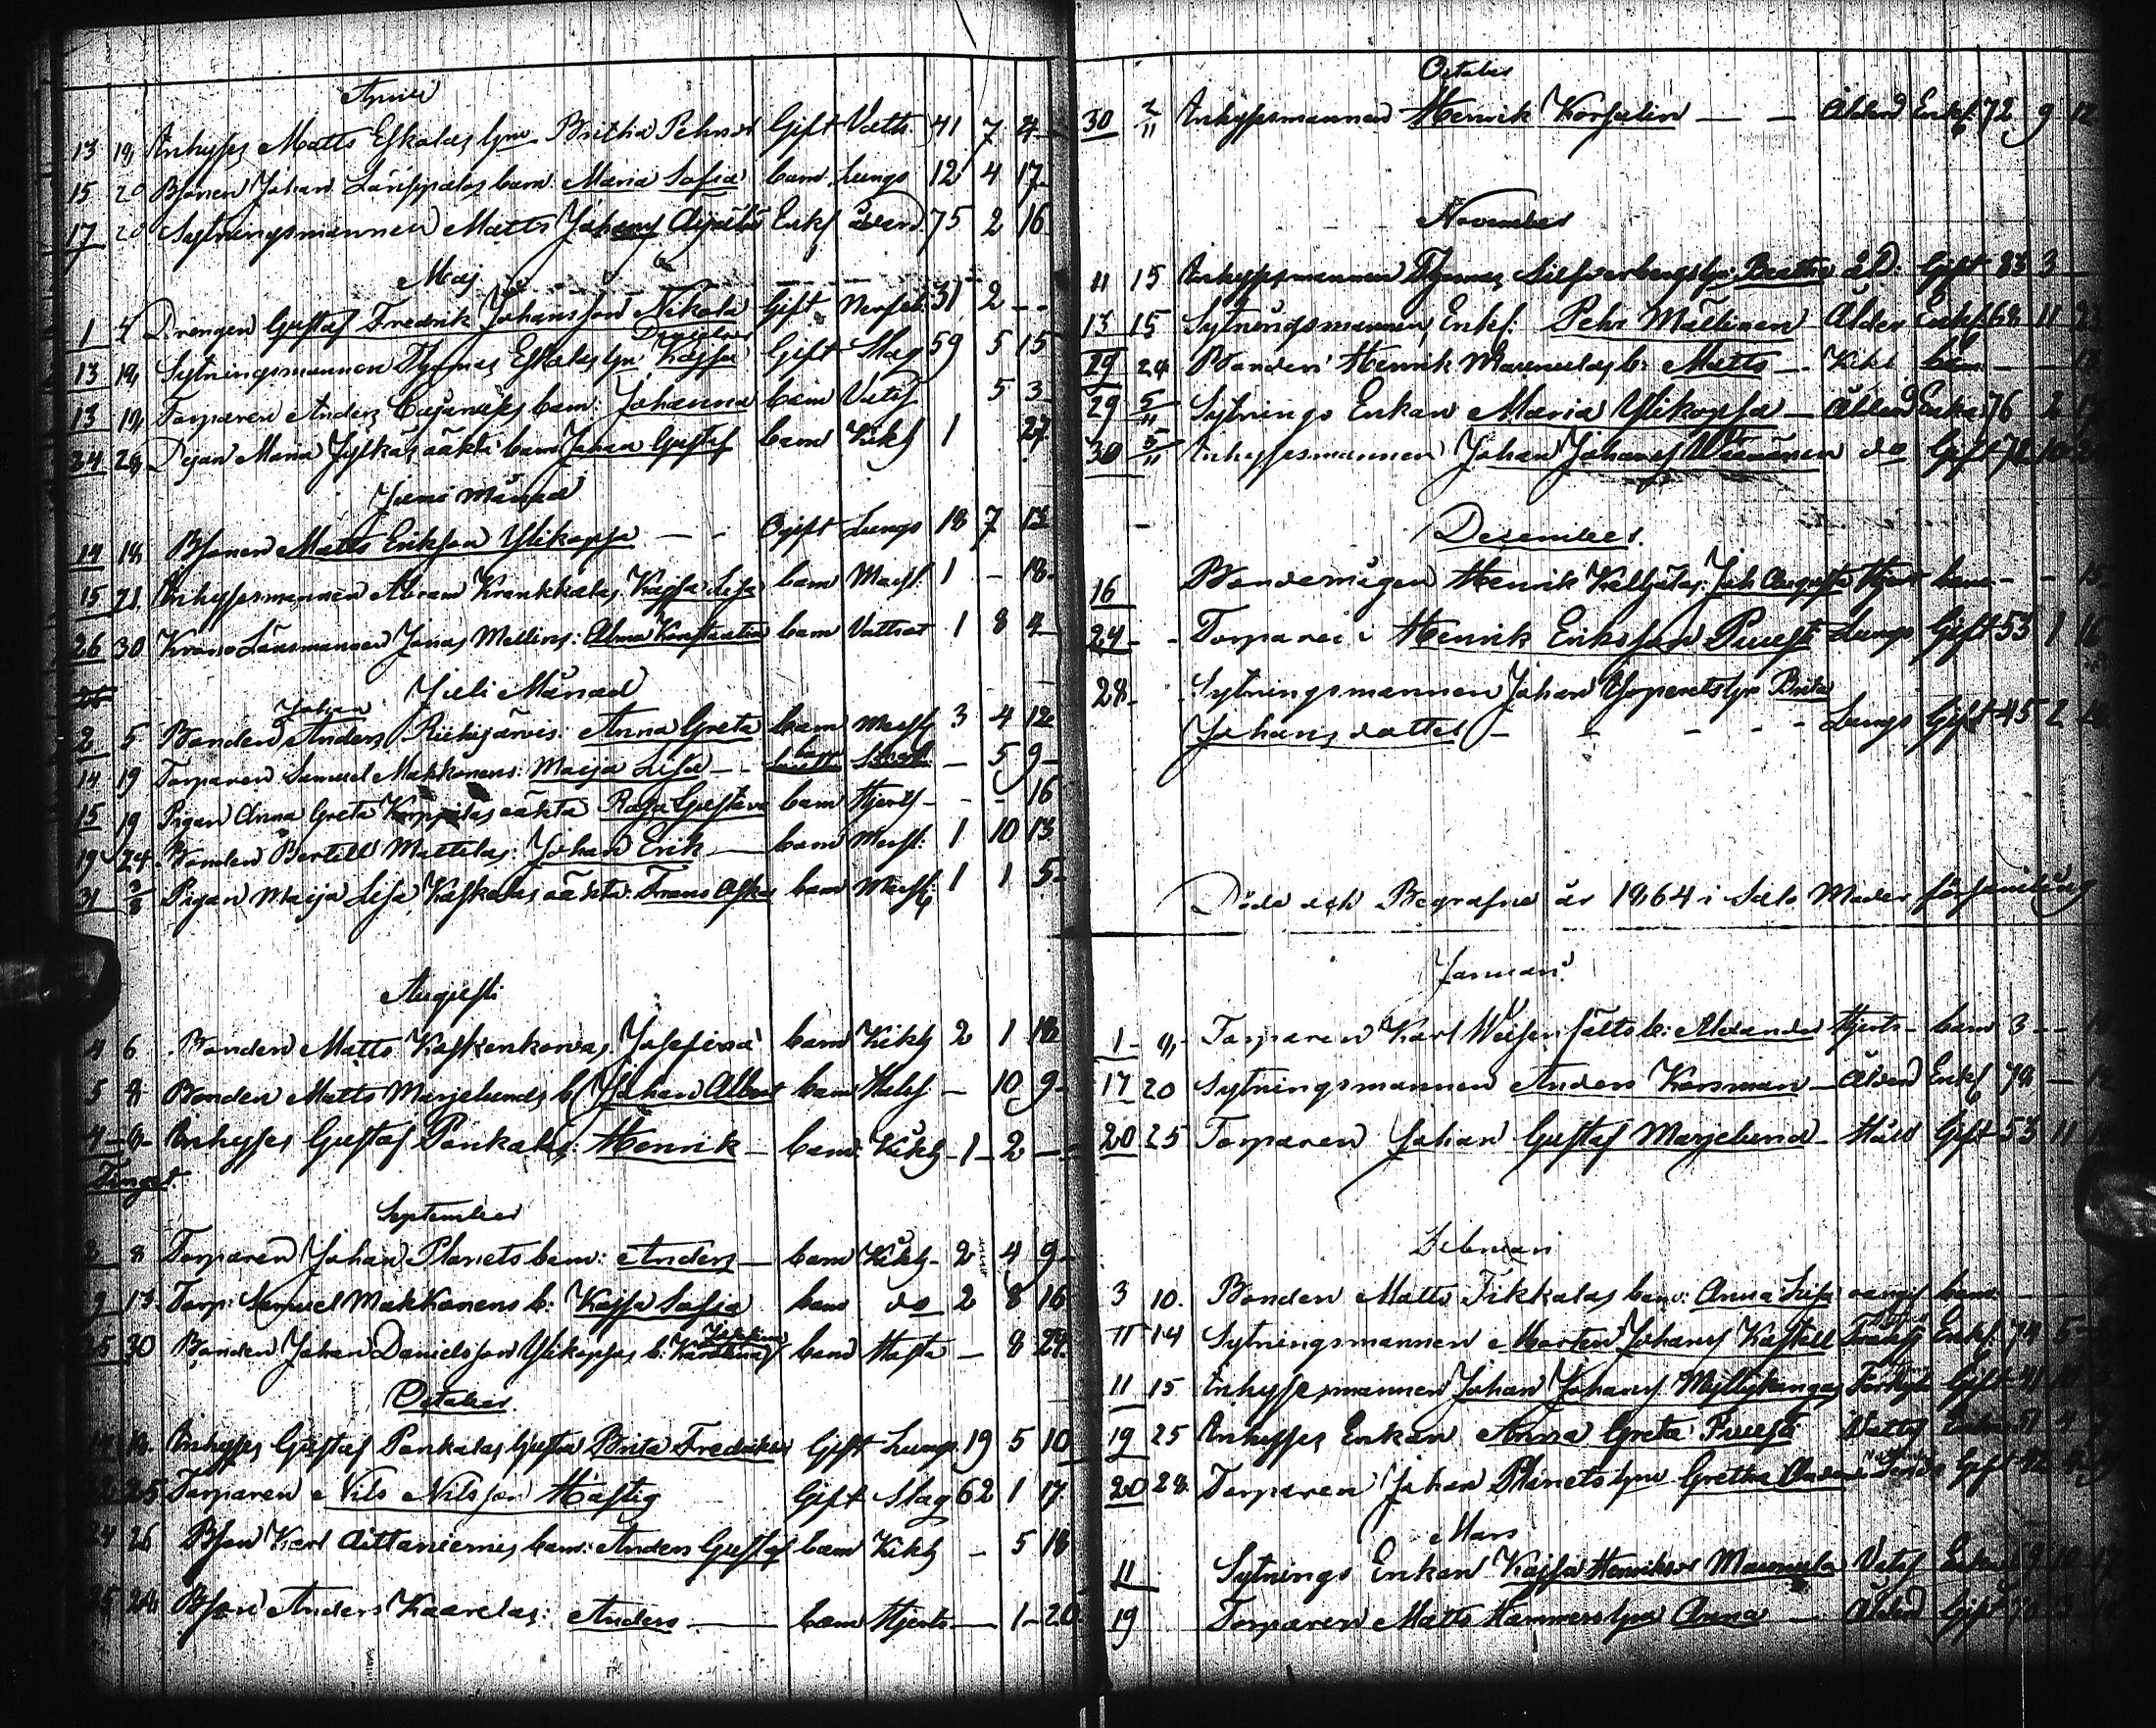 April
13 19 Inhyses Matts Eskolas hu Britha Pehrsd Gift Vatts. 41 7 4
15 20 Bsonen Johan barn: Maria Sofia barn Lungs 12 4 17
17 20 Sytningsmannen Matts Johans Enkl ålderd. 75 2 16
Maj
1 4 Drengen Gustaf Fredrik Johansson Nikola Gift Nerffeb. 31 2 - -
13 19 Sytningsmannen Thomas Eskolas hu Kajsa Gift Slag 59 5 15
13 19 Torparen Anders barn: Johanna barn Vatts 5 3
24 28 Pigan Maria Jylkäs oäkta barn Johan Gustaf barn Kikh 1 27
Juni Månad
14 18 Bsonen Matts Eriksson Ylikopsa - - Ogift Lungs 18 7 13
15 21 Inhysesmannen Abram Krankkalas Kajsa Lisa barn Messl. 1 - 18
26 30 Krono Länsmannen Jonas Mellins: Alma Konstantia barn Vattsot 1 8 4
Juli Månad
Johan
2 5 Bonden Anders Riekijärvis: Anna Greta barn Messl 3 4 12
14 19 Torparen Samuel Makkonens: Maija Lisa - - barn - 5 9
15 19 Pigan Anna Greta Korppilas oäkta Rosa Gustava barn Hjerts - - - 16
19 24 Bonden Bertell Mattilas: Johan Erik - barn Messl: 1 10 13
31 2/8 Pigan Maija Lisa Kaskelas oäkta: Frans Oskar barn Messl: 1 1 5
Augusti
4 6 Bonden Matts Koskenkorvas Josefina barn Kikh 2 1 18
5 8 Bonden Matts Marjelunds b. Johan Albert barn Halsf - 10 9
4 - 9 - Inhyses Gustaf Pankalas: Henrik - barn: Kikh - 1 - 2 -
September
2 8 Torparen Johan Planets barn: Anders - barn Kikh - 2 4 9
9 13 Torp: Samuel Makkonens b: Kajsa Sofia barn do 2 8 16
25 30 Bonden Johan Danielsson Ylikopsas b: Karolina barn Hosta - 8 24
October
18 Inhyses Gustaf Pankalas hustru Brita Fredrika Gift Lungs 19 5 10
22 25 Torparen Nils Nilsson Hästig Gift Slag 62 1 17
24 26 Bson Karl Aittaniemis barn: Anders Gustaf barn Kikh - 5 18
25 Bson Anders Kaarelas: Anders - barn Hjerts - 1 - 20
October
30 2/11 Inhysesmannen Henrik Korsulin - - Ålderd Enkl 72 9 12
November
11 15 Inhysesmannen Thomas Silfverbergs hu: Beatha åld. Gift 83 3
13 15 Sytningsmannen Enkl: Pehr Mällinen Ålder Enkl 68 11
19 24 Bonden Henrik b: Matts - Kikh barn -
29 5/11 Sytnings Enkan Maria Ylikopsa - Ålderd Enka 76 2
30 5/11 Inhysesmannen Johan Johans do Gift 72 10
December.
16 Bondemågen Henrik Joh. Augusta barn - -
24 - - Torparen Henrik Eriksson Puusti Lungs Gift 53 1 16
28 - Sytningsmannen Johan hu Brita
Johans dotter - - - - Lungs Gift 45 2
Döde och Begrafne år 1864 i Salo Moder församling
Januari
1 - Torparen Karl b: Alexander Hjerts - barn 3 - -
17 20 Sytningsmannen Anders Korsman - Ålderd Enkl 79 -
20 25 Torparen Johan Gustaf Marjelund - Håll Gift 53 11
Februari
3 10. Bonden Matts Tikkalas barn: Anna Lisa oangif barn
11 14 Sytningsmannen Morten Johans Kastell Enkl. 74 5
11 15 Inhysesmannen Johan Johans. Myllykangas Gift 41
19 25 Inhyses Enkan Anna Greta Puusta Enka
20 28 Torparen Johan Planets hu Gretha Gift
Mars
11 Sytnings Enkan Kajsa Henriksd Vatts Enka
19 Torparen Matts Hammars hu Anna - Ålderd Gift